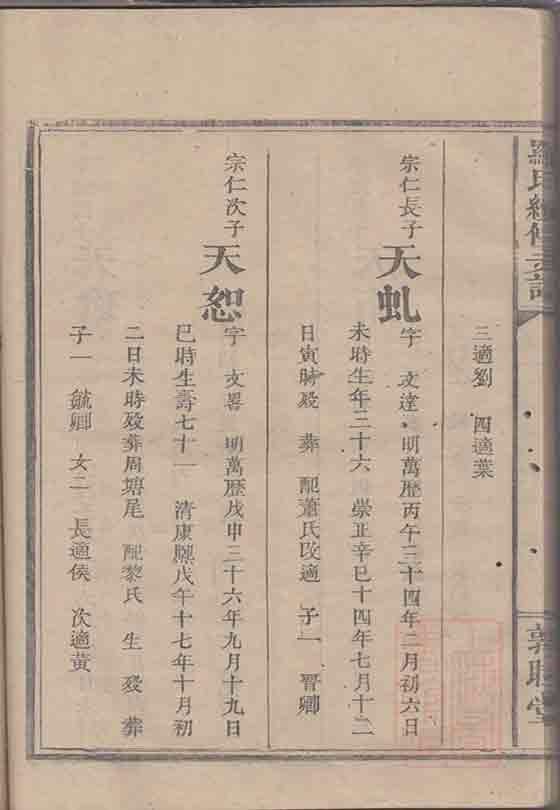 羅氏續修支譜
敦睦堂
三適劉　四適葉
宗仁長子　天虬　字　文達　明萬歷丙午三十四年二月初六日
未時生年三十六　崇正辛巳十四年七月十二
日寅時殁　葬　配蕭氏改適　子一　晋卿
宗仁次子　天恕　字　文畧　明萬歷戊申三十六年九月十九日
巳時生壽七十一　清康熙戊午十七年十月初
二日未時殁葬周塘尾　配黎氏　生　殁　葬
子一　毓卿　女二　長適侯　次適黃